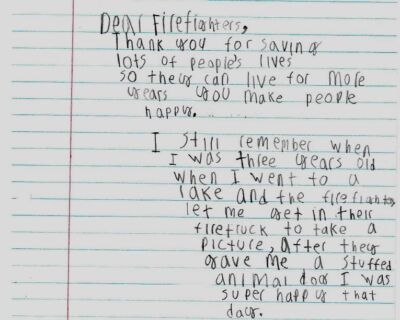 Dear Firefighters,
Thank you for saving
lots of people's lives
so they can live for more
years you make people
happy.
I still remember when
I was three years old
when I went to a
lake and the firefighters
let me get in their
firetruck to take a
picture, after they
gave me a stuffed
animal dog I was
super happy that
day.